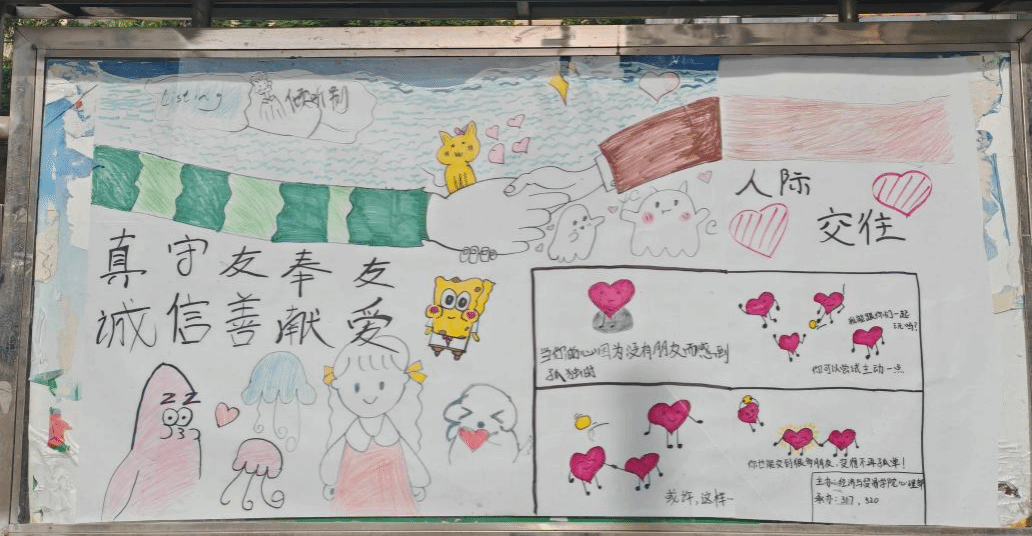 Listing
倾听别
人际
交往
真守友奉友
诚信善献爱
当你的心因为没有朋友而感到
孤独时
我能跟你们一起
玩吗?
你可以尝试主动一点
或许,这样…
你也能交到很多朋友,变得不再孤单!
主办:经济与贸易学院心理部
承办:317,320